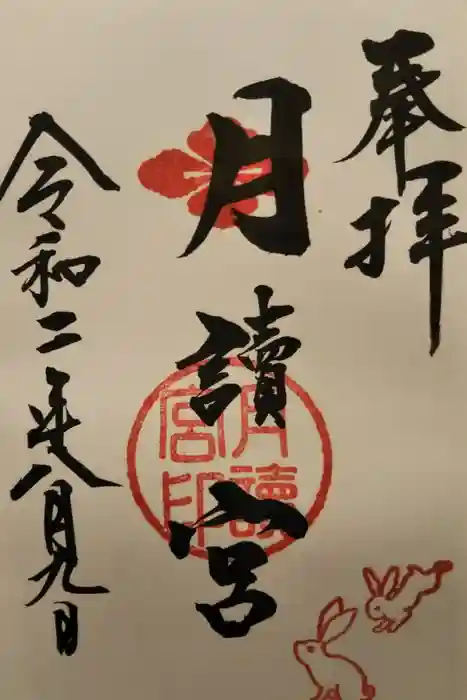 奉拝
月讀宮
月讀
宮印
令和二年八月九日